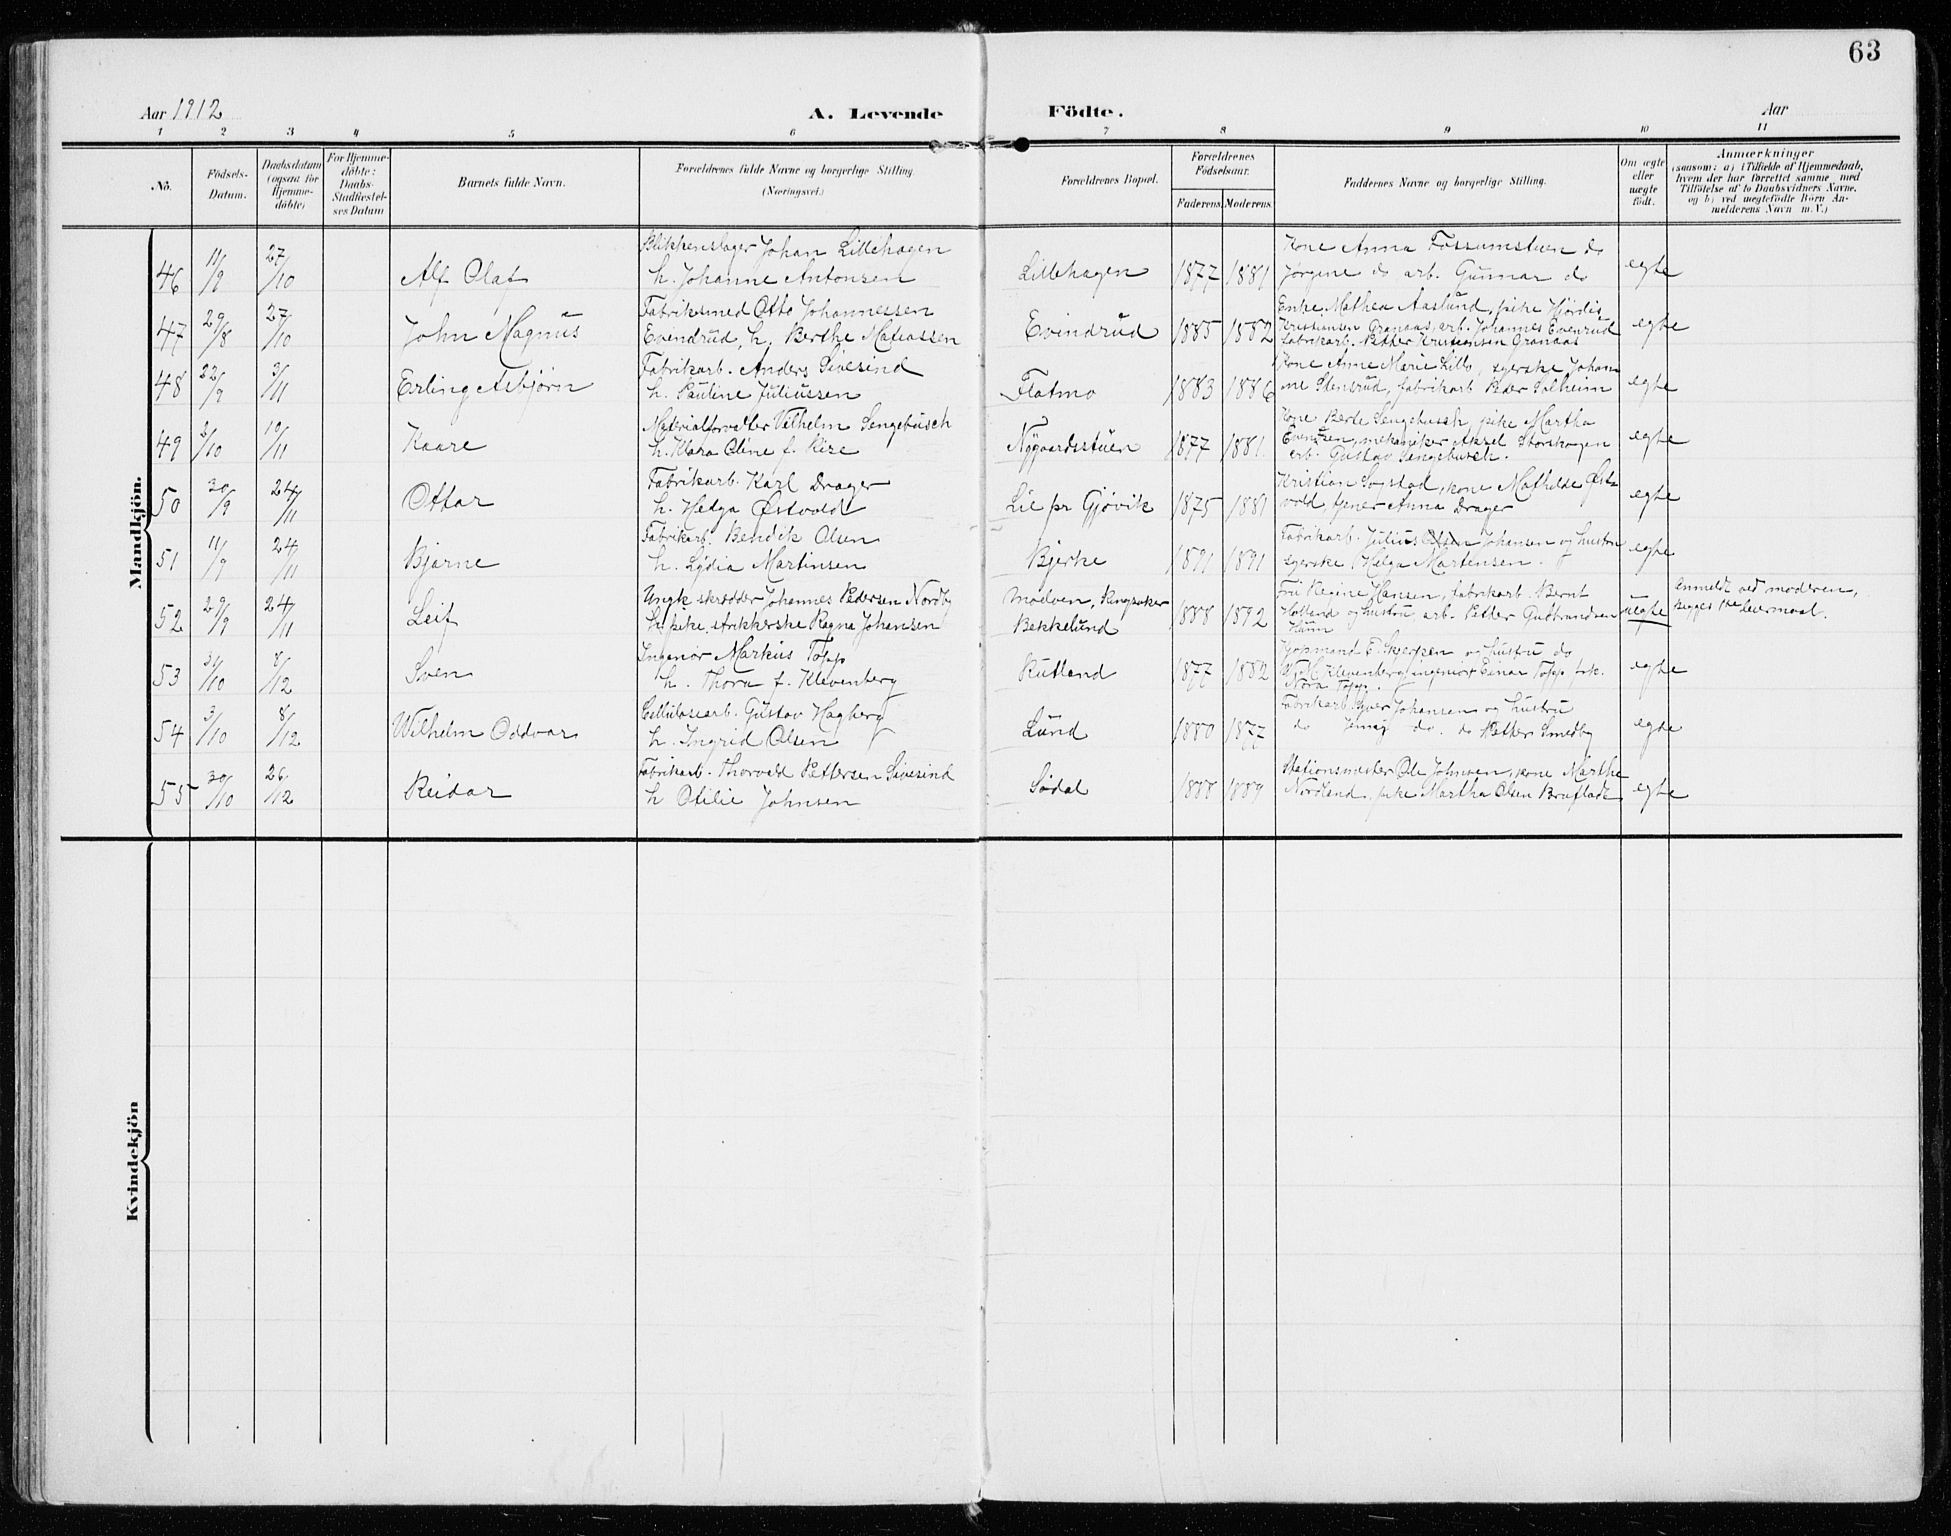 63
Aar 1912 A. Levende Födte. Aar
1 2 3 4 5 6 7 8 9 10 11
No. Födsels-Datum. Daabsdatum (ogsaa for Hjemme-döbte) For Hjemme-döbte: Daabs-Stadfæstel-ses Datum Barnets fulde Navn. Forældrenes fulde Navne og borgerlige Stilling (Næringsvei.) Forældrenes Bopæl. Forældrenes Födselsaar. Faderens. Moderens. Faddernes Navne og borgerlige Stilling. Om ægte eller uægte födt. Anmærkninger (saasom: a) i Tilfælde af Hjemmedaab, hvem der har forrettet samme, med Tilföielse af to Daabsvidners Navne, og b) ved uægtefödte Börn An-melderens Navn m. V.)
Mandkjön.
46 11/9 27/10 Alf Olaf Blikkenslager Johan Lillehagen
h. Johanne Antonsen Lillehagen 1877 1881 Kone Anna Fossumstuen do
Jørgine do arb. Gunnar do egte
47 29/8 27/10 John Magnus Fabriksmed Otto Johannessen
Evindrud, h. Berthe Matiassen Evindrud 1885 1882 Enke Mathea Aaslund, pike Hjørdis
Kristiansen Granaas, arb. Johannes Evenrud
fabrikarb. Petter Kristiansen Granaas egte
48 22/9 3/11 Erling Asbjørn Fabrikarb. Anders Sivesind
h. Pauline Juliussen Flatmo 1883 1886 Kone Anne Marie Lillo, syerske Johan
ne Stensrud, fabrikarb Peder Solheim egte
49 3/10 10/11 Kaare Materialforvalter Vilhelm Sengebusch
h. Klara Oline f. Kise Nygaardsstuen 1877 1881 Kone Berte Sengebusch, pike Martha
Evensen, mekaniker Aksel Storskogen
arb. Gustav Sengebusch. egte
50 30/9 24/11 Ottar Fabrikarb. Karl Drager
h. Helga Østvold Lie pr Gjøvik 1875 1881 Kristian Sogstad, kone Mathilde Øst-
vold, tjener Anna Drager egte
51 11/9 24/11 Bjarne Fabrikarb. Bendik Olsen
h. Lydia Martinsen Bjerke 1891 1891 Fabrikarb. Julius Johansen og hustru
syerske Helga Martensen. egte
52 29/9 24/11 Leif Ungk skrædder Johannes Pedersen Nordby
h. pike, strikkerske Ragna Johansen Moelven, Ringsaker
Bekkelund 1888 1892 Fru Regine Hansen, fabrikarb. Bernt
Hotland og hustru, arb. Petter Gudbrandsen
uegte Anmeldt ved moderen,
begges 1ste leiermaal.
53 31/10 8/12 Sven Ingeniør Markus Topp
h. Thora f. Klevenberg Rutland 1877 1882 Kjøpmand E. Skjerpen og hustru do
Klevenberg, ingeniør Einar Topp, frk.
Nora Topp. egte
54 3/10 8/12 Wilhelm Oddvar Cellulosearb. Gustav Hagberg
h. Ingrid Olsen Lund 1880 1877 Fabrikarb. Iver Johansen og hustru
do Jenny do. do Petter Smedby egte
55 30/10 26/12 Reidar Fabrikarb. Thorvald Pettersen Sivesind
h Otilie Johnsen Sødal 1888 1889 Stationsmester Ole Johnsen, kone Marthe
Nordland, pike Martha Olsen Bruflade egte
Kvindekjön